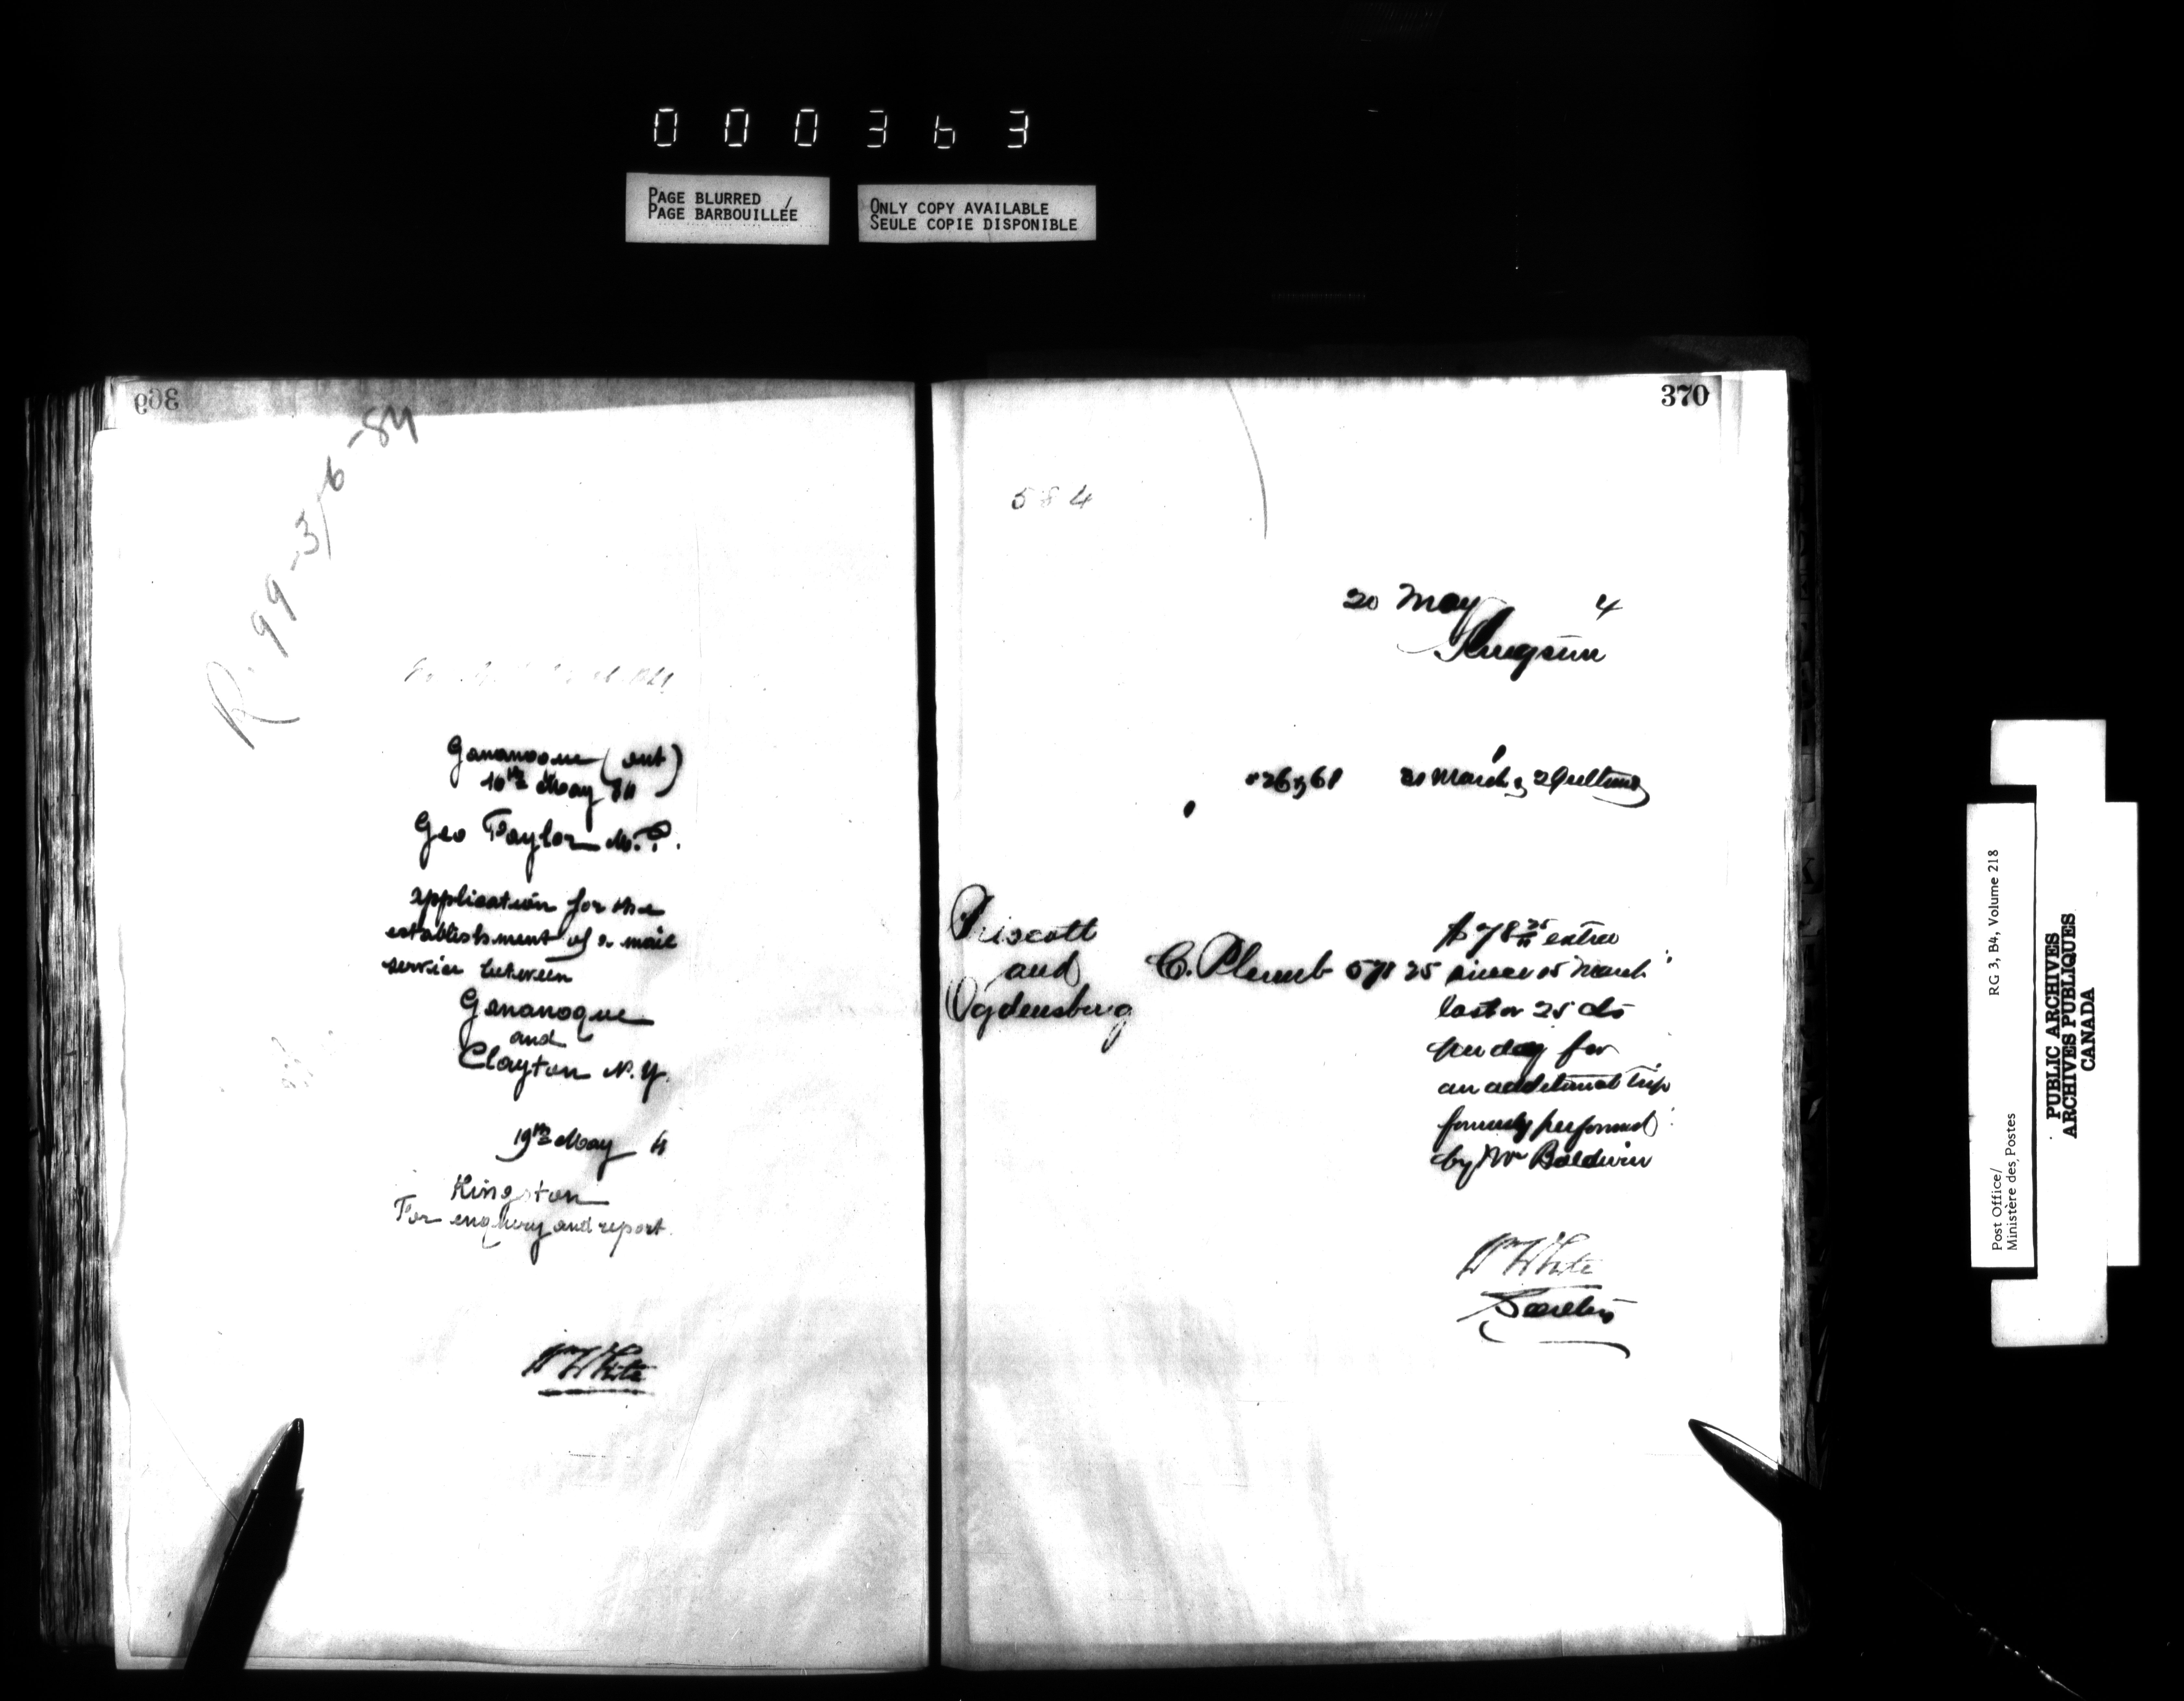 000363
PAGE BLURRED
PAGE BARBOUILLÉE
ONLY COPY AVAILABLE
SEULE COPIE DISPONIBLE
369
R. 99-3/6-84
Gananoque (Ont)
10th May 84
Geo Taylor M.P.
application for the
establishment of a mail
service between
Gananoque
and
Clayton N.Y.
19th May 4
Kingston
For enquiry and report.
Wm White
370
584
20 May 4
Kingston
20 March
Prescott
and
Ogdensburg
C. Plumb 571 25
$78 25 extra
since 15 March
last or 25 cts
per day for
an additional trip
formerly performed
by Mr Baldwin
Wm White
Post Office/
Ministère des Postes
RG 3, B4, Volume 218
PUBLIC ARCHIVES
ARCHIVES PUBLIQUES
CANADA